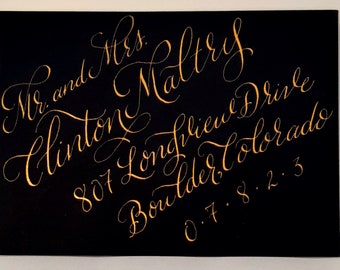 Mr. and Mrs.
Clinton Maltry
807 Longview Drive
Boulder, Colorado
0 · 7 · 8 · 2 · 3